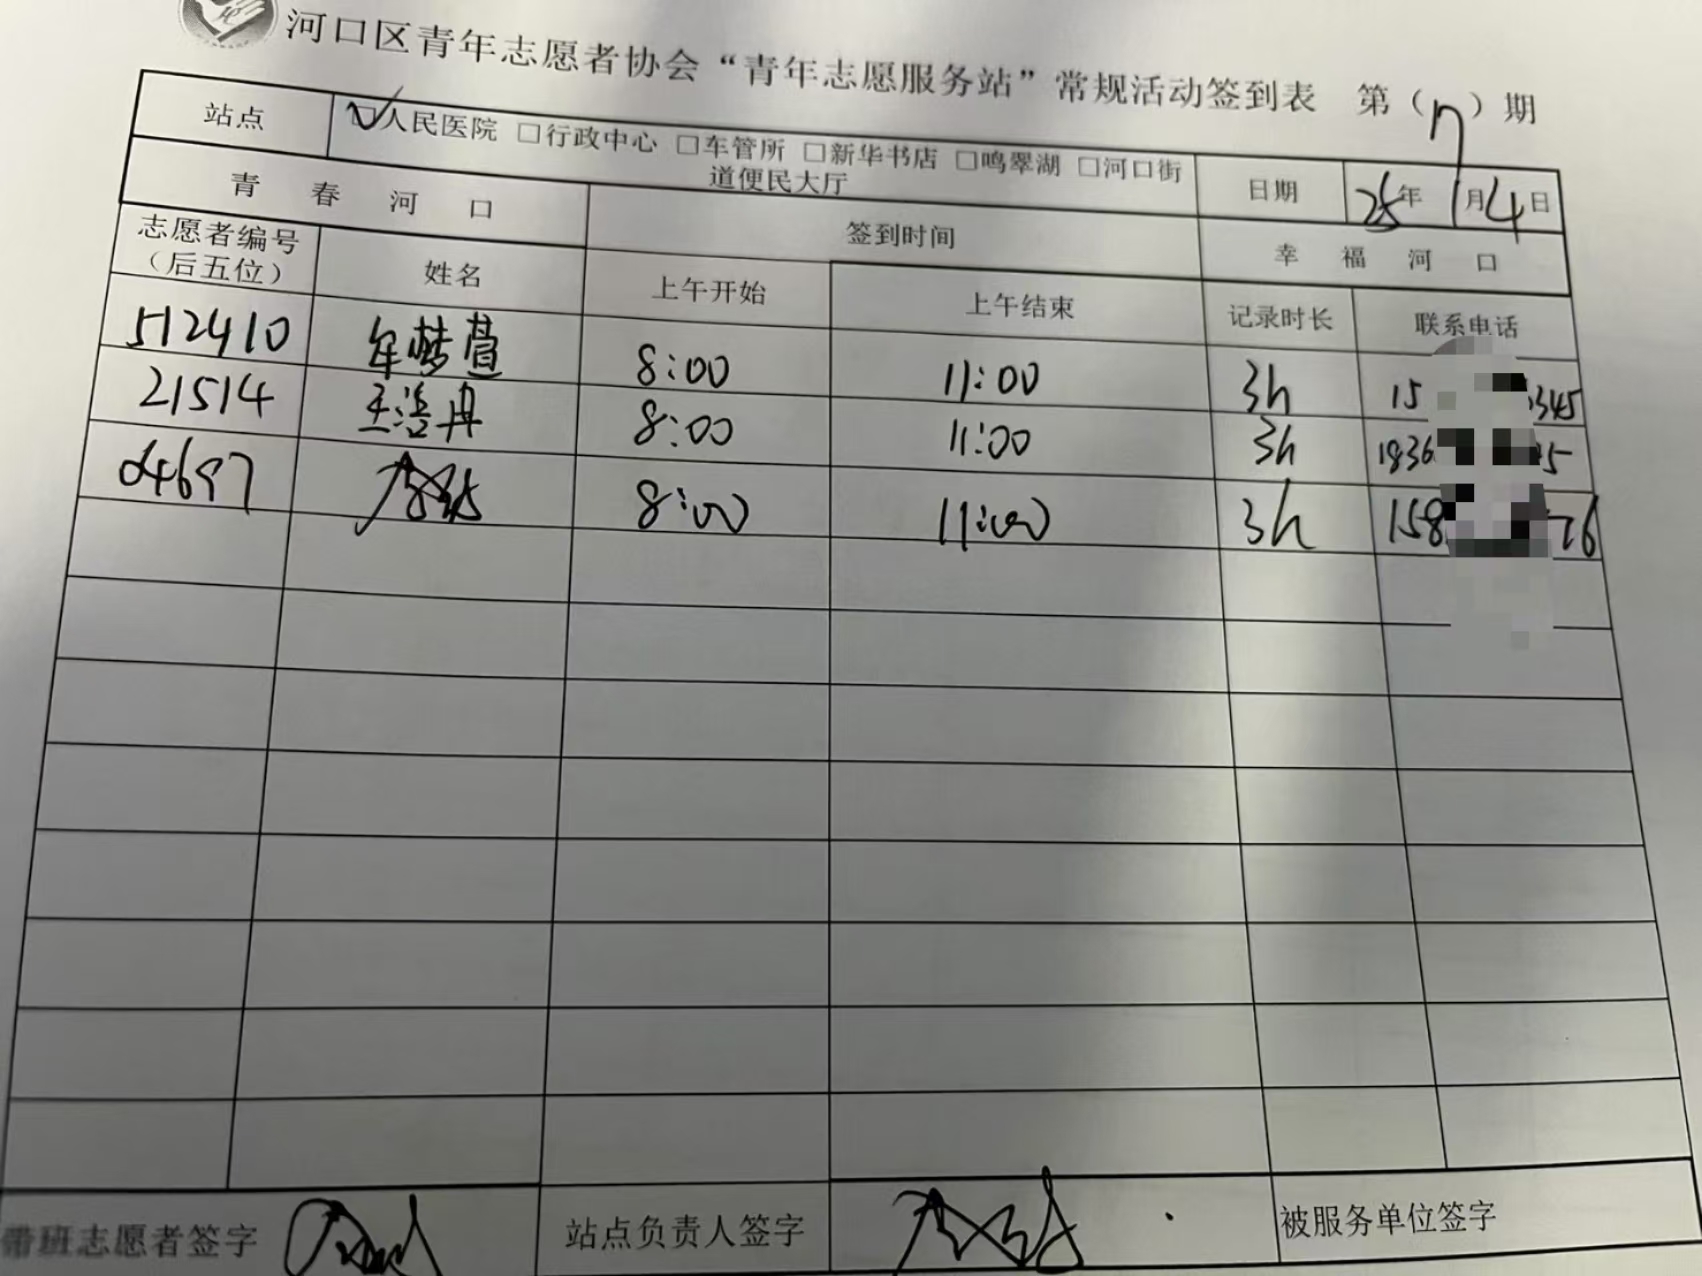 河口区青年志愿者协会“青年志愿服务站”常规活动签到表 第（17）期
站点 ☑人民医院 □行政中心 □车管所 □新华书店 □鸣翠湖 □河口街道便民大厅 日期 25年1月4日
青春河口 签到时间 幸福河口
志愿者编号（后五位） 姓名 上午开始 上午结束 记录时长 联系电话
512410 牟梦萱 8:00 11:00 3h 15 345
21514 王洺丹 8:00 11:00 3h 1836 5
04697 8:00 11:00 3h 158 76
带班志愿者签字 站点负责人签字 被服务单位签字